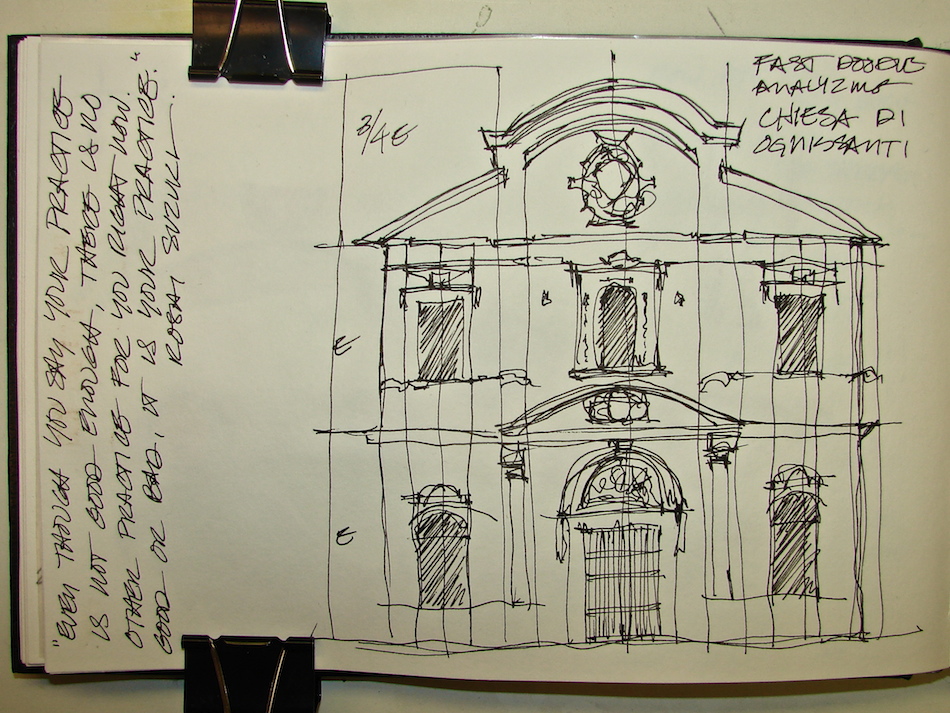 FAST DOODLE
ANALYZING
CHIESA DI
OGNISSANTI
3/4 E
E
E
"EVEN THOUGH YOU SAY YOUR PRACTICE
IS NOT GOOD ENOUGH, THERE IS NO
OTHER PRACTICE FOR YOU RIGHT NOW.
GOOD OR BAD, IT IS YOUR PRACTICE."
ROSHI SUZUKI